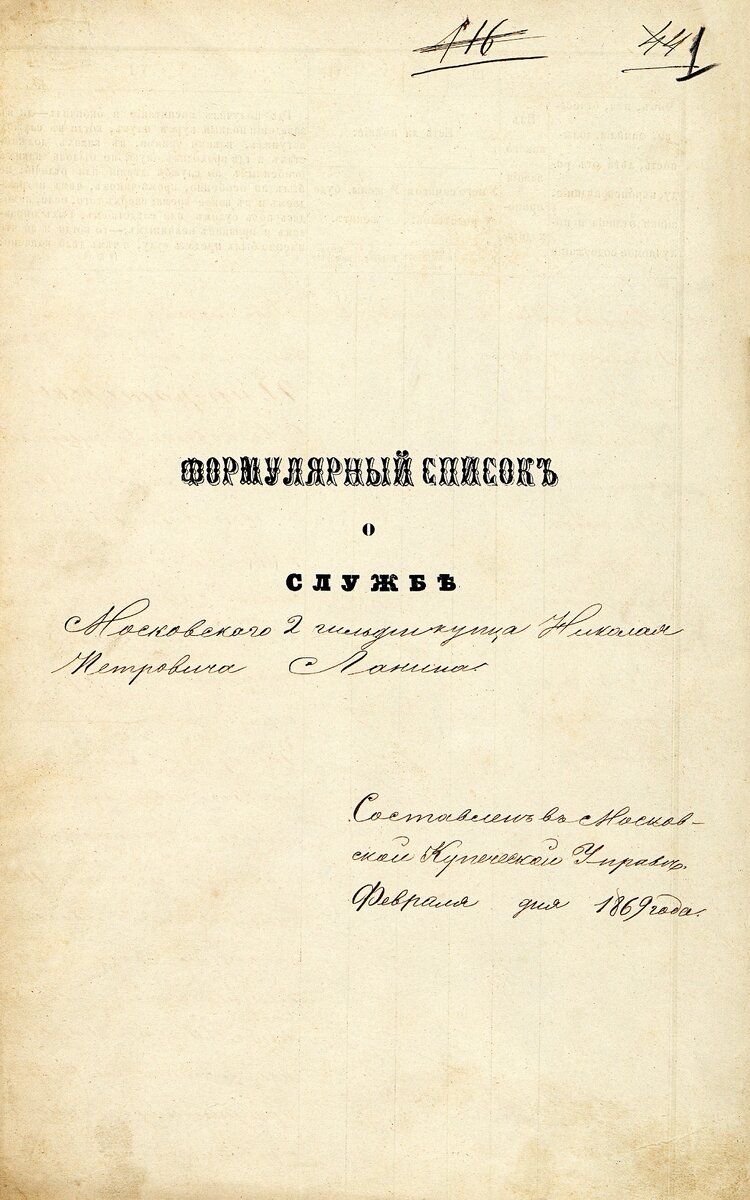 116 44 1
ФОРМУЛЯРНЫЙ СПИСОКЪ
О
СЛУЖБѢ
Московскаго 2 гильдіи купца Николая
Петровича Ланина.
Составленъ въ Москов-
ской Купеческой Управѣ.
Февраля дня 1869 года.